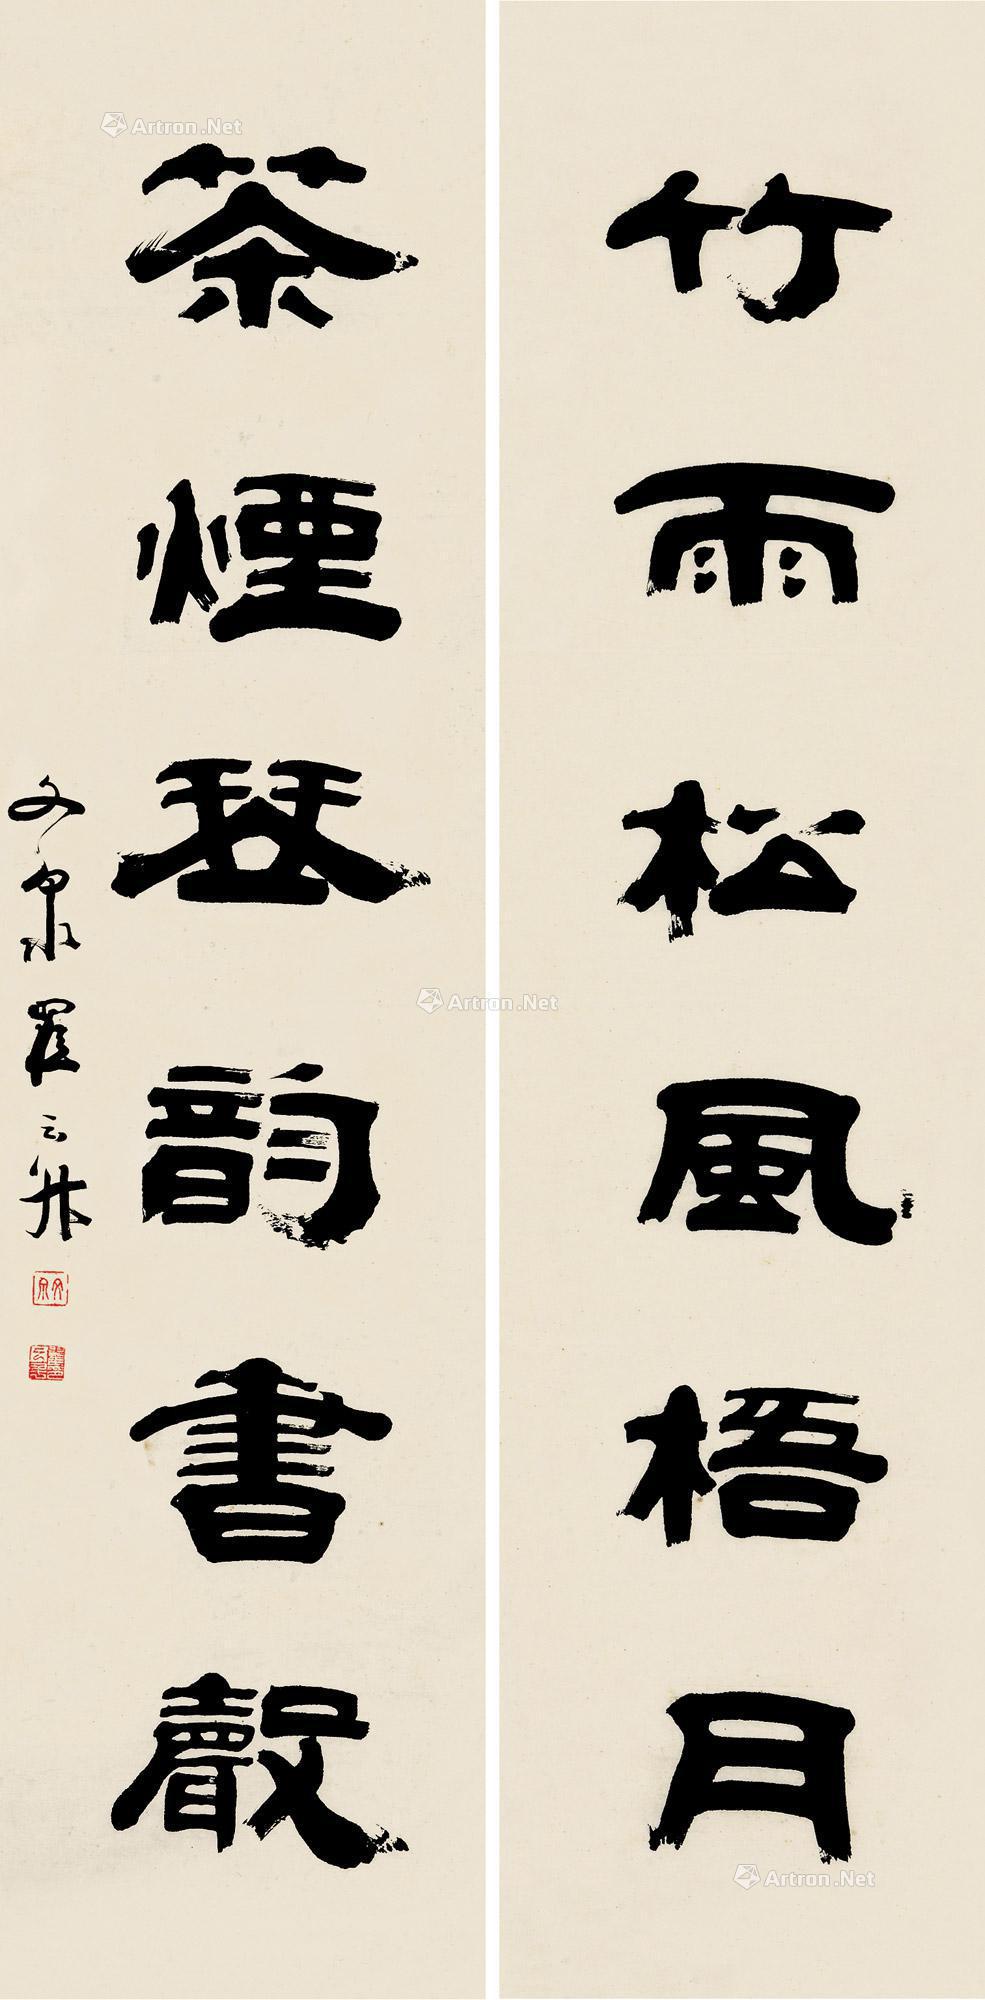 竹雨松風梧月
茶煙琴韵書聲
文泉羅云
Artron.Net
Artron.Net
Artron.Net